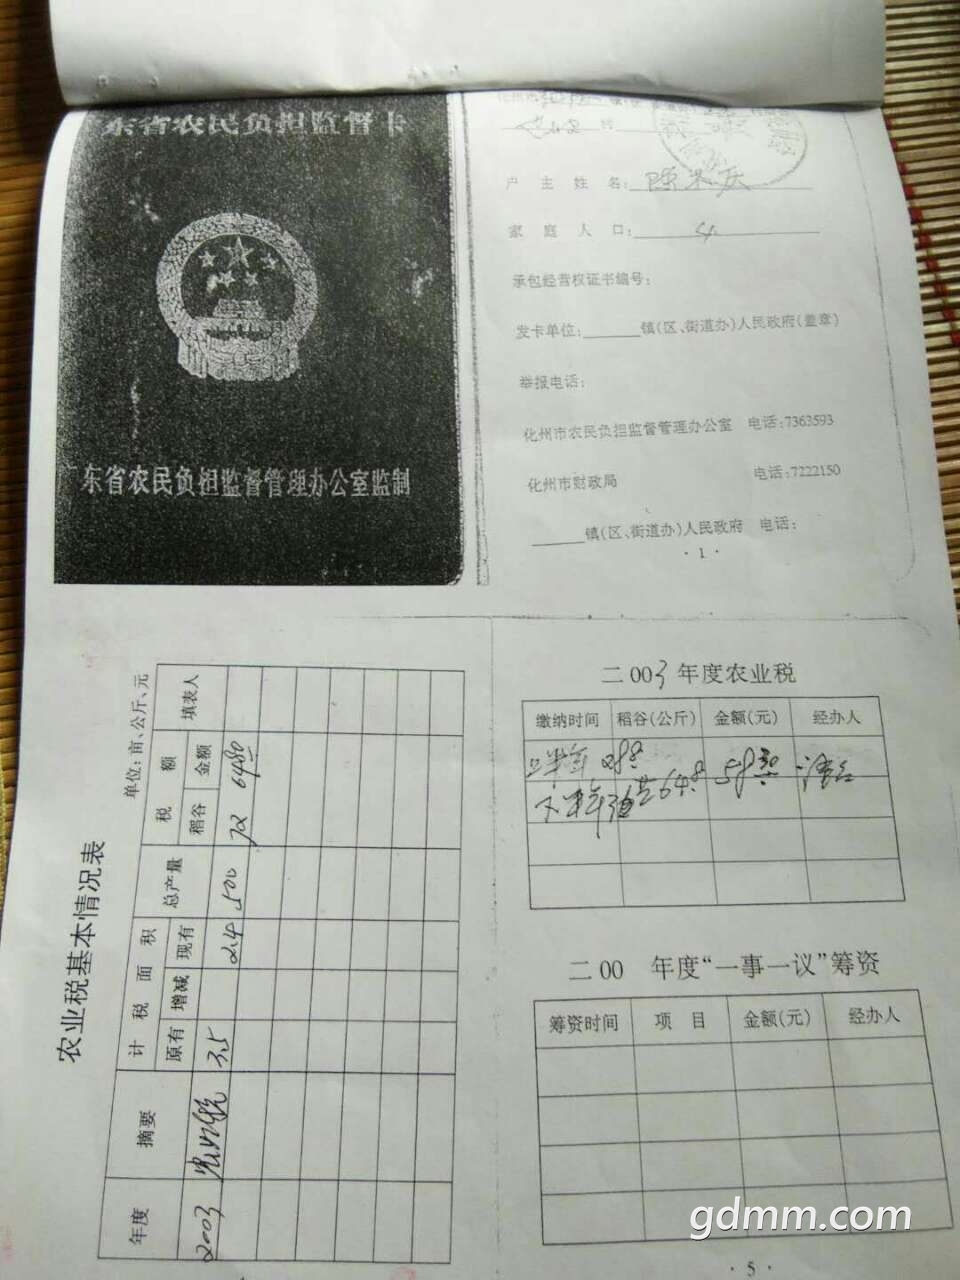 东省农民负担监督卡
东省农民负担监督管理办公室监制
户主姓名:
家庭人口: 4
承包经营权证书编号:
发卡单位:______镇(区、街道办)人民政府(盖章)
举报电话:
化州市农民负担监督管理办公室 电话:7363593
化州市财政局 电话:7222150
______镇(区、街道办)人民政府 电话:
·1·
农业税基本情况表
单位:亩、公斤、元
年度 摘要 计税面积 总产量 税额 填表人
原有 增减 现有 稻谷 金额
2003 农业税 3.5 2.4 500 72 64.80
二003年度农业税
缴纳时间 稻谷(公斤) 金额(元) 经办人
上半年
下半年
二00 年度“一事一议”筹资
筹资时间 项目 金额(元) 经办人
·5·
gdmm.com